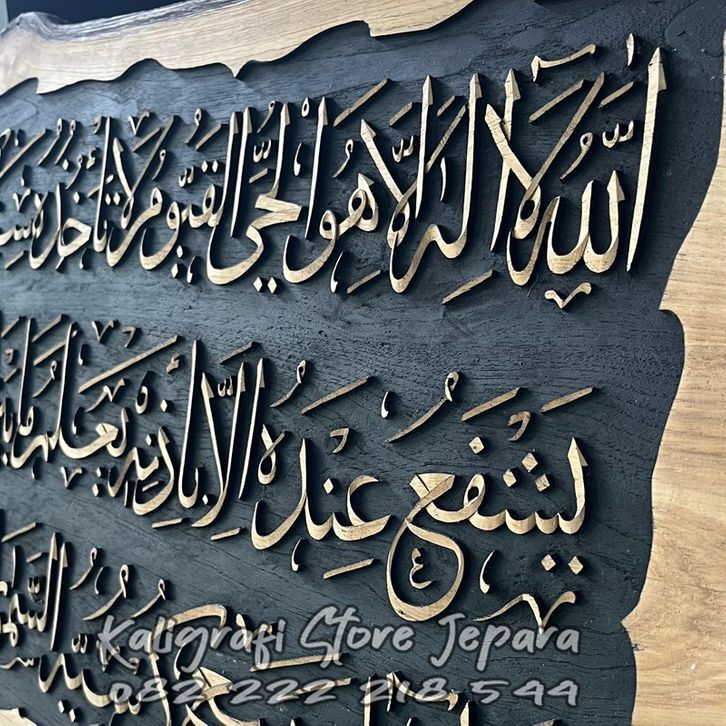 اللَّهُ لَا إِلَٰهَ إِلَّا هُوَ الْحَيُّ الْقَيُّومُ لَا تَأْخُذُهُ
يَشْفَعُ عِنْدَهُ إِلَّا بِإِذْنِهِ يَعْلَمُ مَا
السَّمَ
Kaligrafi Store Jepara
082 222 218 544